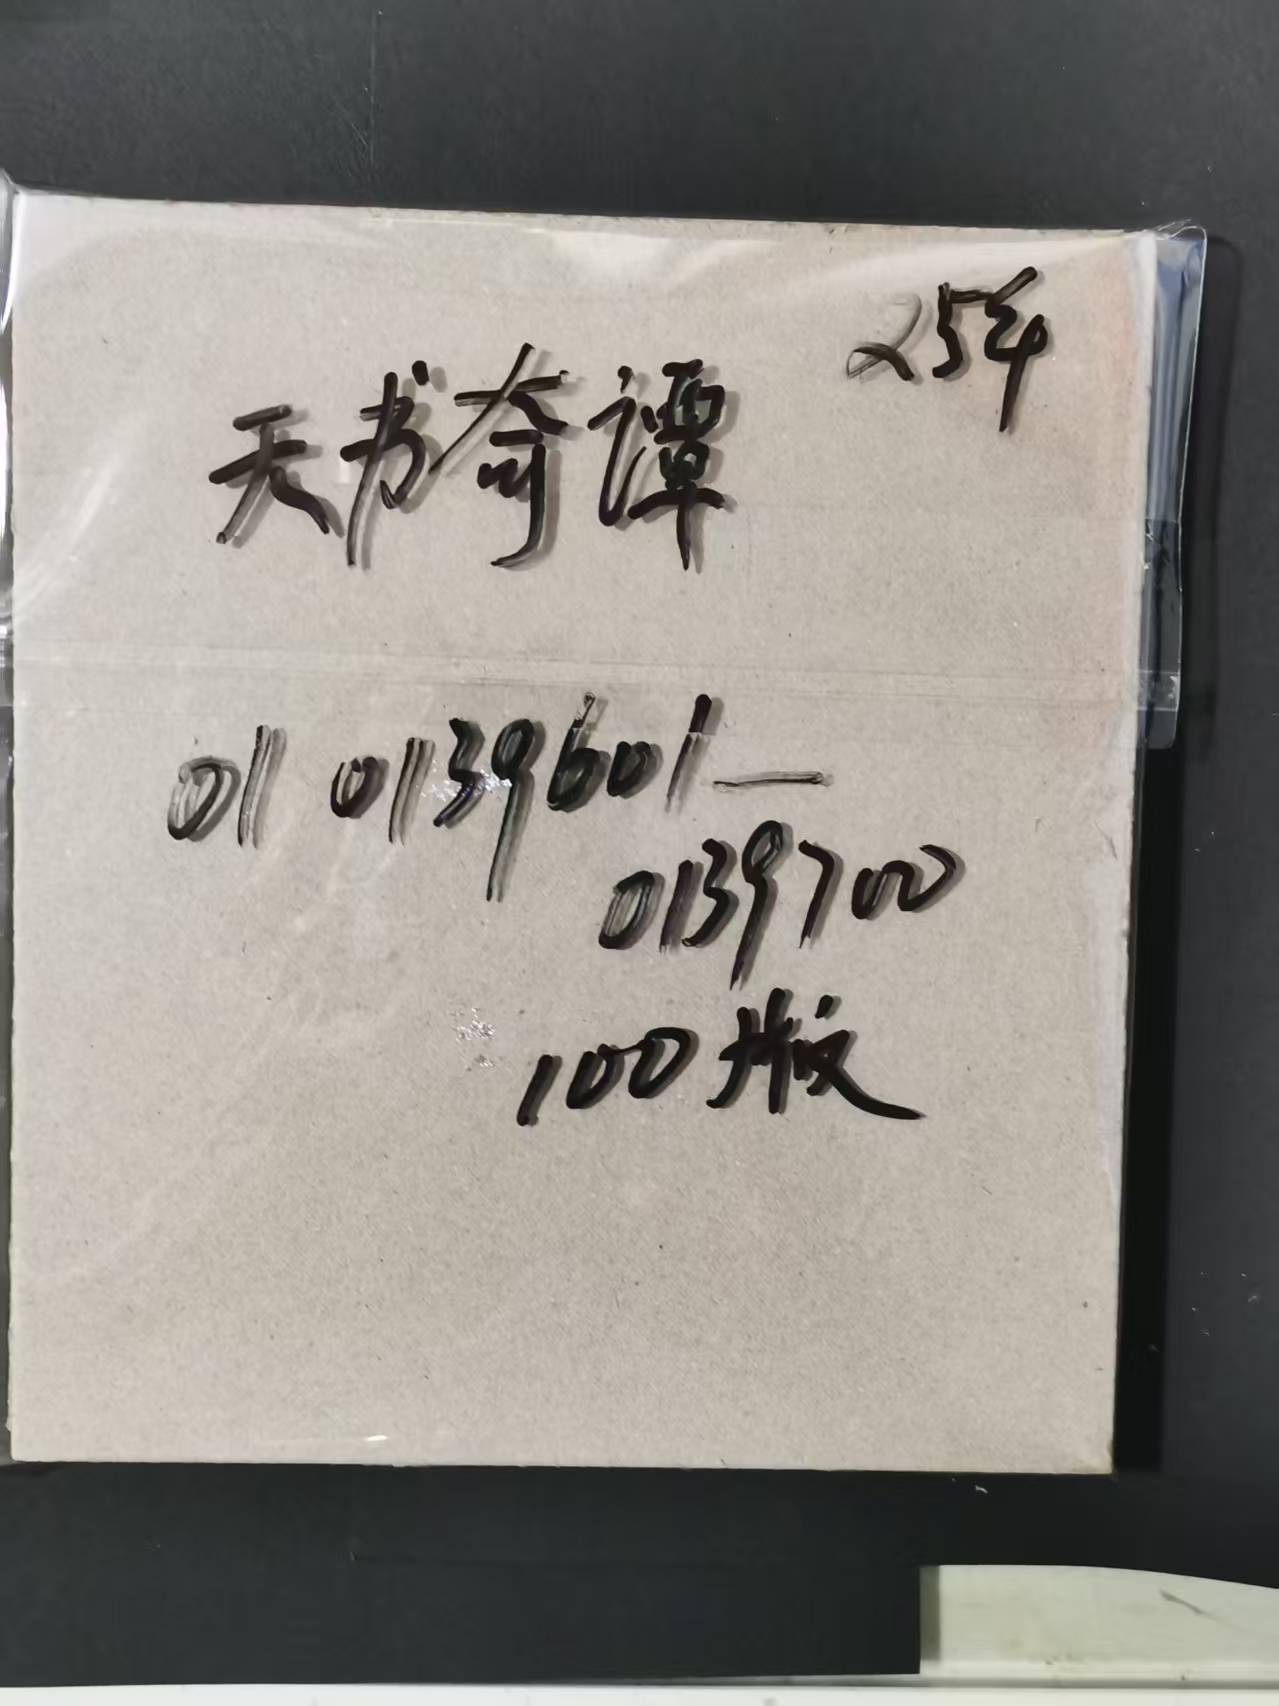 25年
天书奇谭
01 0139601—
0139700
100版